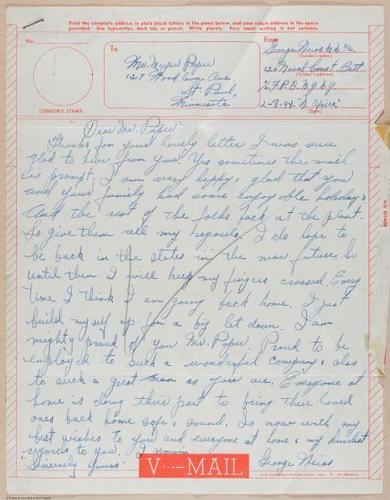 Print the complete address in plain block letters in the panel below, and your return address in the space
provided. Use typewriter, dark ink, or pencil. Write plainly. Very small writing is not suitable.
No.
(CENSOR'S STAMP)
To
Mr. Meyer Paper
1217 Wood Ave
St. Paul,
Minnesota
From
George Weiss
(Sender's name)
120 Naval Const. Batt
(Sender's address)
% F.P.O. N.Y. N.Y.
2-8-44 "N. Africa"
(Date)
Dear Mr. Paper:
Thanks for your lovely letter I was sure
glad to hear from you. Yes sometimes the mail
is prompt. I am very happy & glad that you
and your family had some enjoyable holidays.
And the rest of the folks back at the plant.
So give them all my regards. I do hope to
be back in the states in the near future. So
until then I will keep my fingers crossed. Every
time I think I am going back home. I just
build myself up for a big let down. I am
mighty proud of you Mr. Paper. Proud to be
employed to such a wonderful company & also
to such a great man as your are. Everyone at
home is doing their part to bring their loved
ones back home safe & sound. So now with my
best wishes to you and everyone at home & my kindest
regards to you. I remain
Sincerely yours.
George Weiss
V···—MAIL